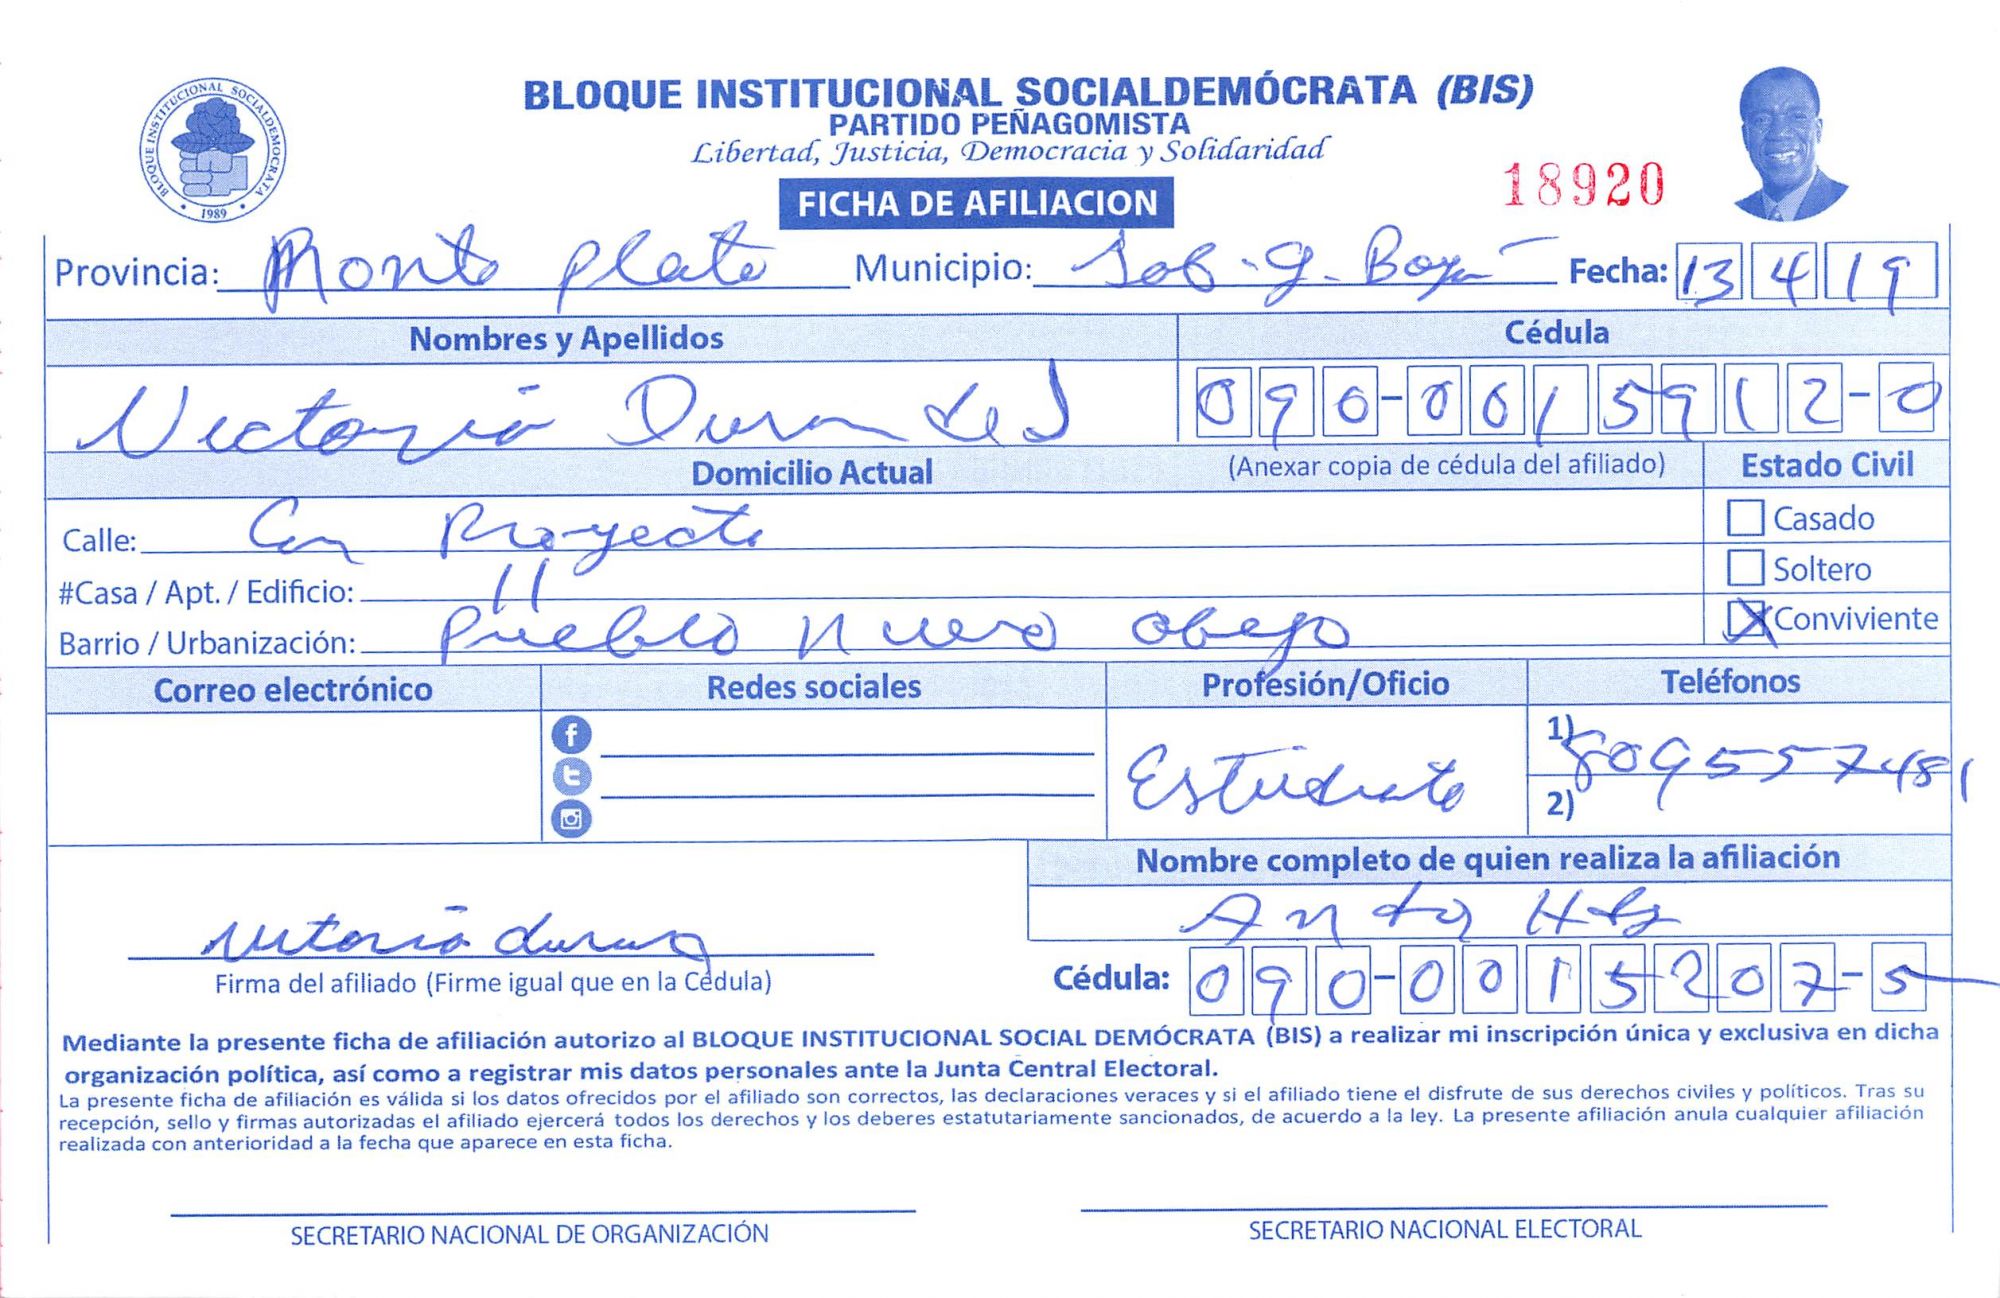 BLOQUE INSTITUCIONAL SOCIALDEMÓCRATA (BIS)
PARTIDO PEÑAGOMISTA
Libertad, Justicia, Democracia y Solidaridad
BLOQUE INSTITUCIONAL SOCIALDEMOCRATA
1989
18920
FICHA DE AFILIACION
Provincia: Monte Plata Municipio: Sab. g. Boya Fecha: 13 4 19
Nombres y Apellidos Cédula
Victoria Duran 090-0015912-0
Domicilio Actual (Anexar copia de cédula del afiliado) Estado Civil
Calle: Proyecto Casado
#Casa / Apt. / Edificio: 11 Soltero
Barrio / Urbanización: Pueblo Nuevo X Conviviente
Correo electrónico Redes sociales Profesión/Oficio Teléfonos
Estudiante 1) 8095577481
2)
Nombre completo de quien realiza la afiliación
victoria duran
Firma del afiliado (Firme igual que en la Cédula) Cédula: 090-0015207-5
Mediante la presente ficha de afiliación autorizo al BLOQUE INSTITUCIONAL SOCIAL DEMÓCRATA (BIS) a realizar mi inscripción única y exclusiva en dicha
organización política, así como a registrar mis datos personales ante la Junta Central Electoral.
La presente ficha de afiliación es válida si los datos ofrecidos por el afiliado son correctos, las declaraciones veraces y si el afiliado tiene el disfrute de sus derechos civiles y políticos. Tras su
recepción, sello y firmas autorizadas el afiliado ejercerá todos los derechos y los deberes estatutariamente sancionados, de acuerdo a la ley. La presente afiliación anula cualquier afiliación
realizada con anterioridad a la fecha que aparece en esta ficha.
SECRETARIO NACIONAL DE ORGANIZACIÓN SECRETARIO NACIONAL ELECTORAL